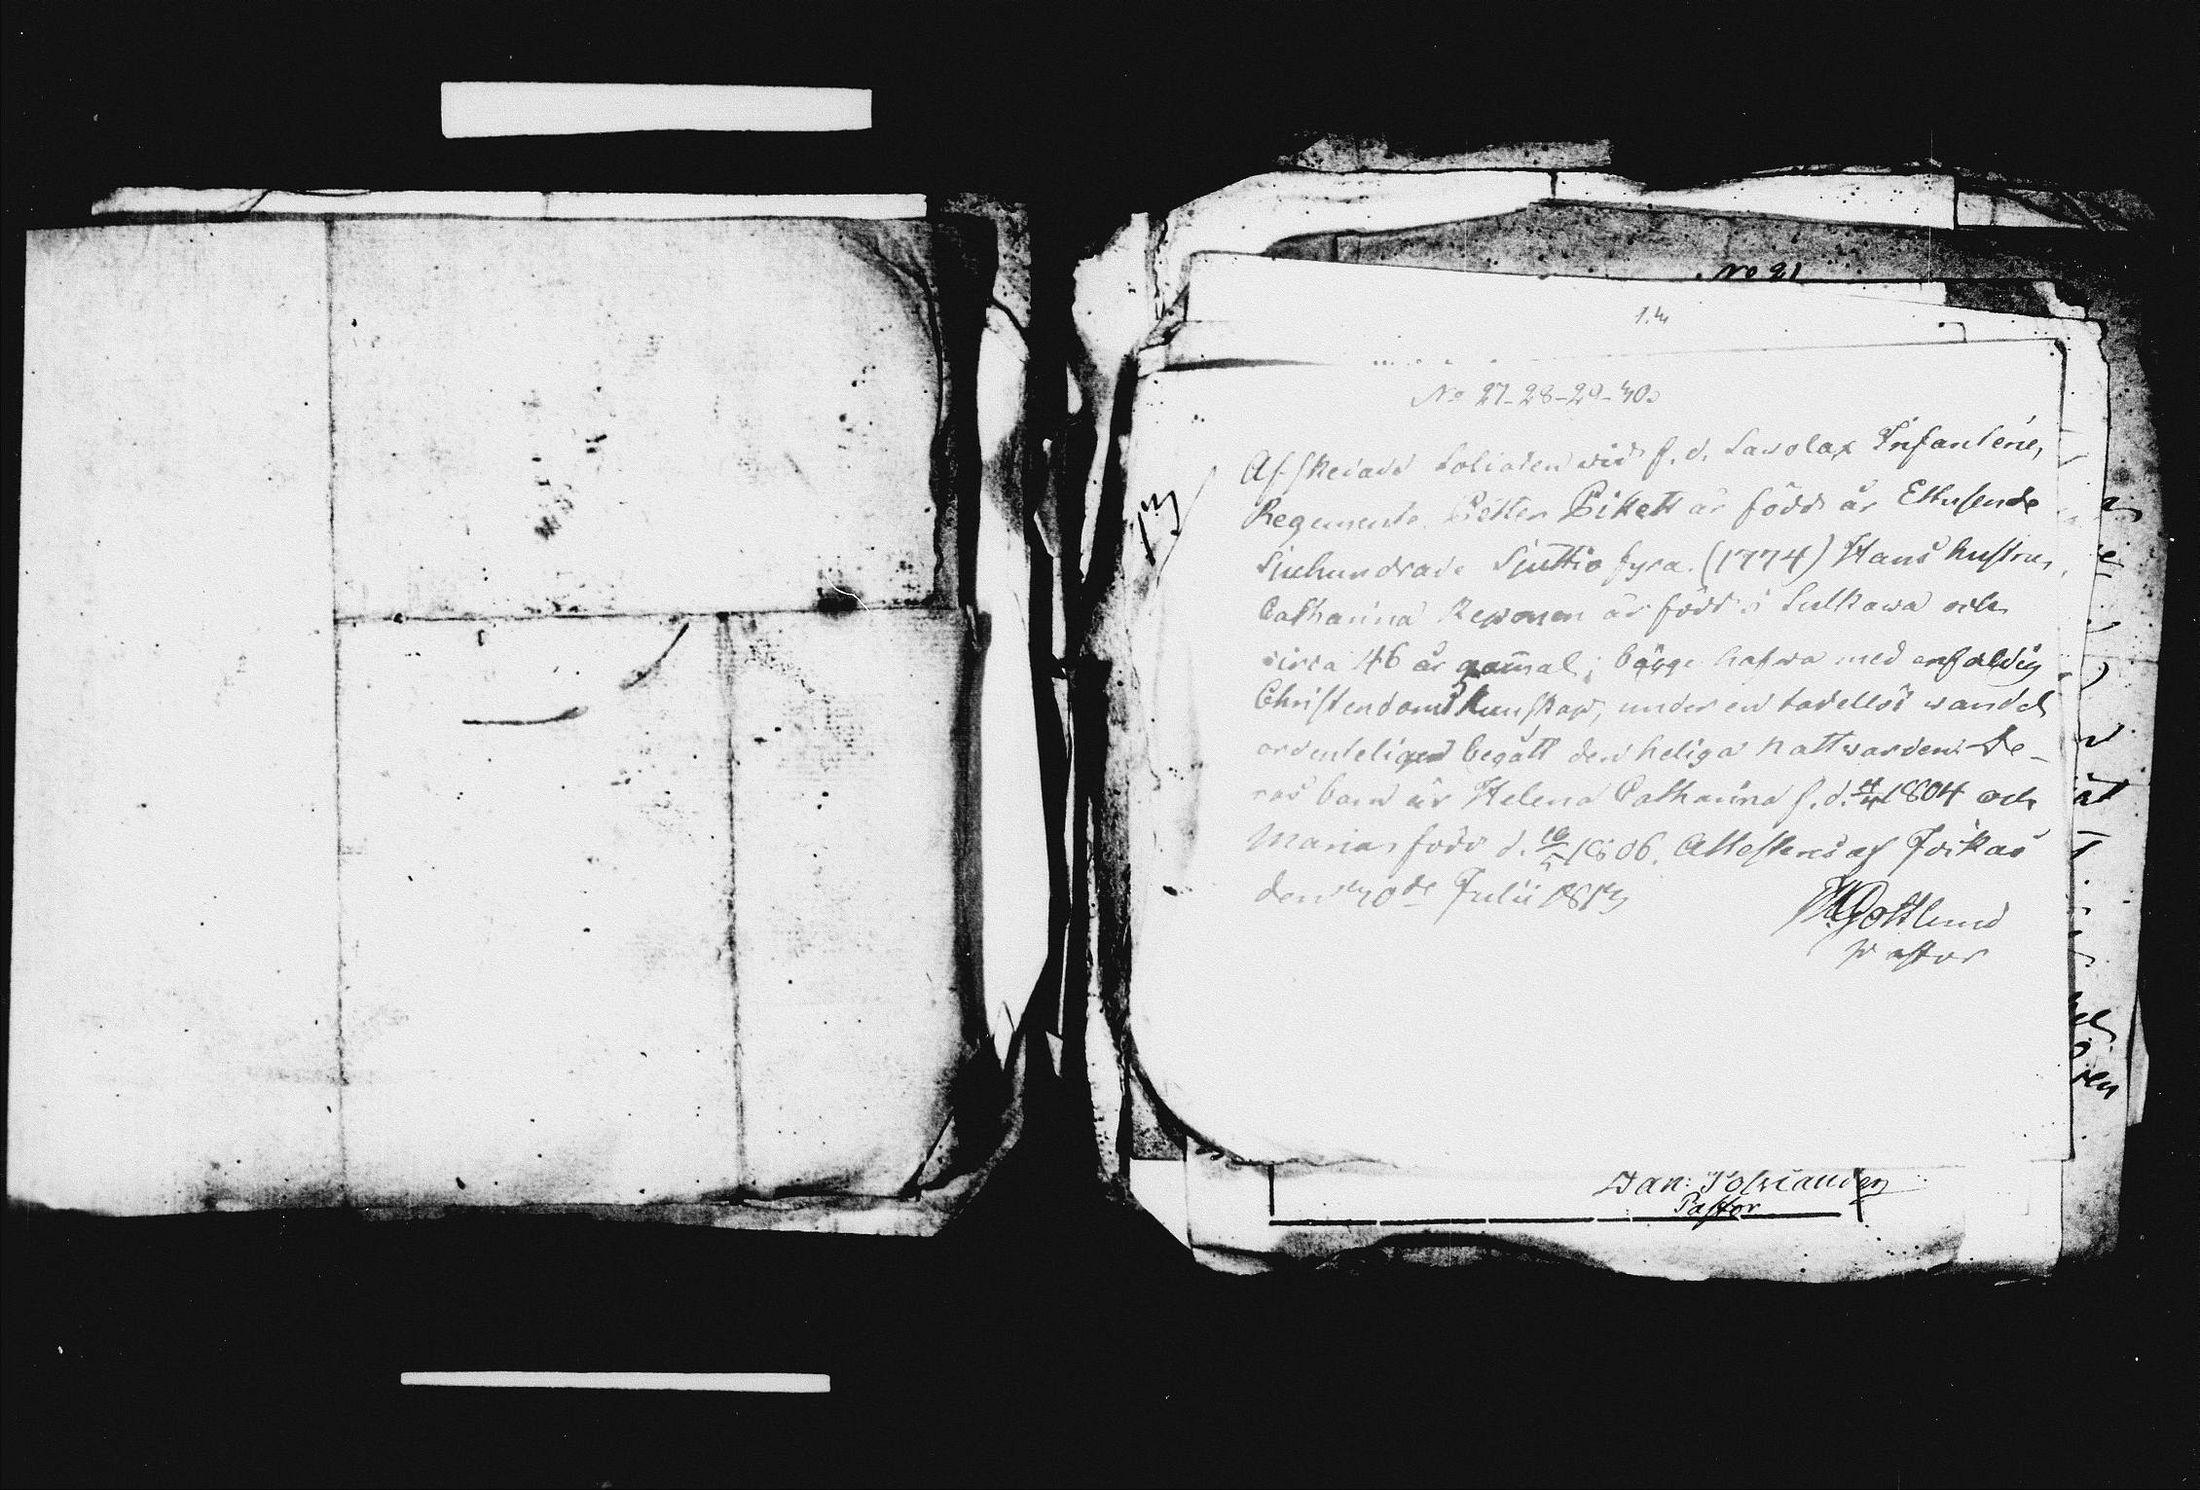 No 21
13
No 27-28-29-30
Afskedade Soldaten wid f.d. Savolax Infanterie,
Regemente Petter Pikett är född år Ettusende
Sjuhundrade Sjuttio fyra (1774) Hans hustru,
Catharina Reponen är född i Sulkava och
circa 46 år gammal; bägge hafva med enfaldig
Christendoms kunskap, under en tadellös wandel
ordenteligen begått den heliga nattwarden. De-
ras barn är Helena Catharina f.d. 1804 och
Maria, född d. 1806. Attesteras af Joikas
den 30de Julii 1813
Gottlund
Pastor
Dan:
Pastor